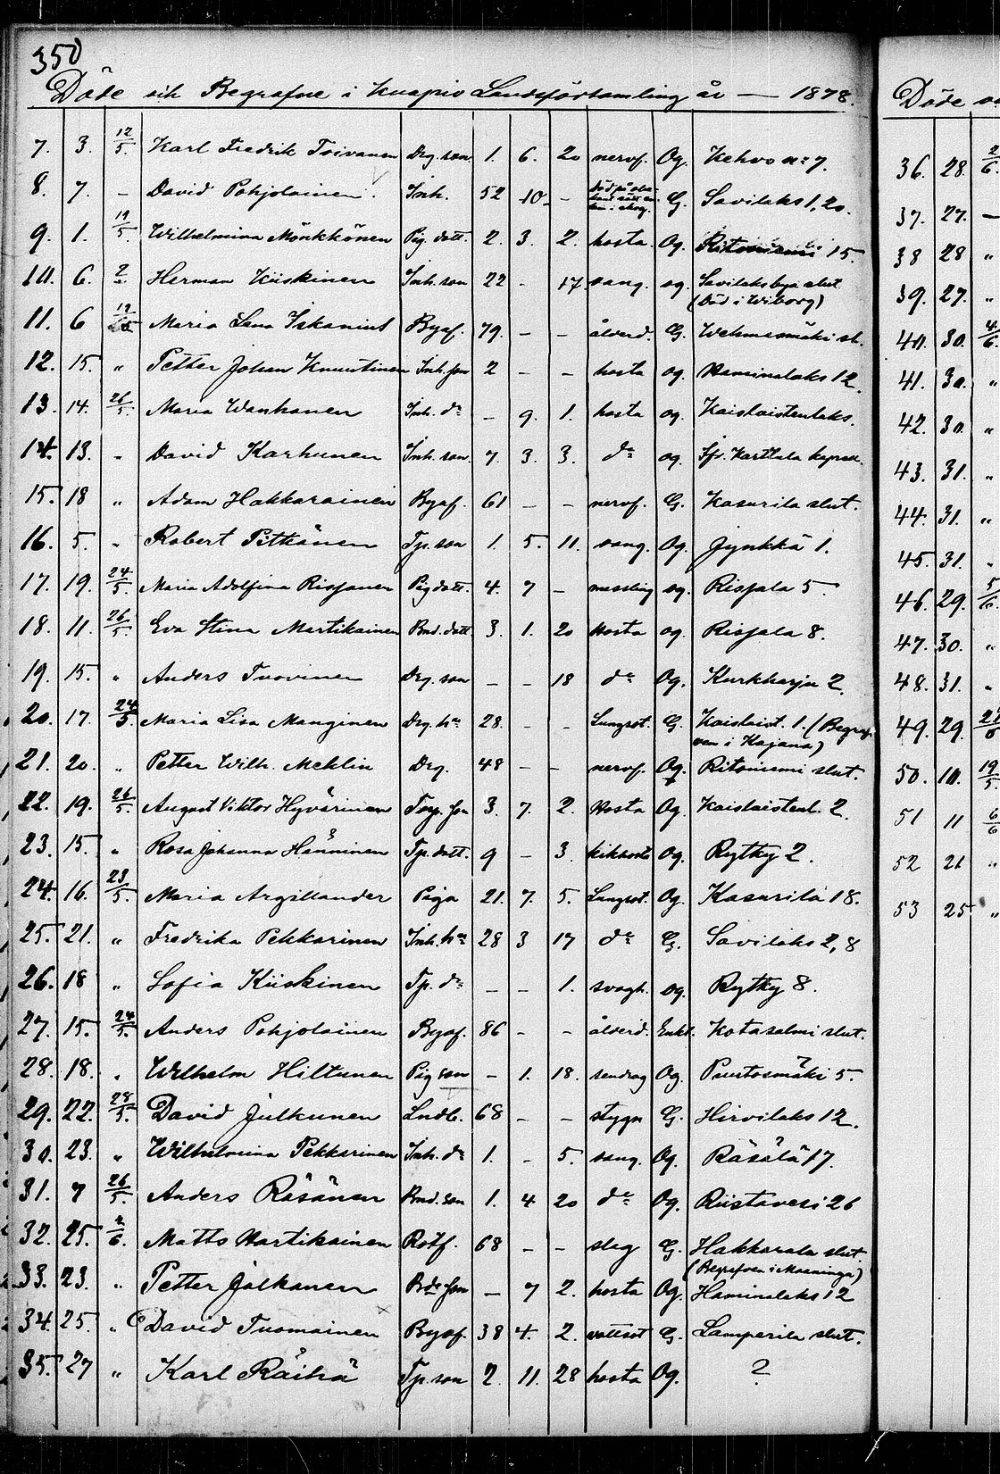 350
Döde och Begrafne i Kuopio Landsförsamling år — 1878.
7. 3. 12/5. Karl Fredrik Toivanen Drg. son 1. 6. 20 nervf. Og. Kehvo No 7.
8. 7. – David Pohjolainen Inh. 52 10 – G. Savilaks 1, 20.
9. 1. 19/5. Wilhelmina Mönkkönen Pig. dott. 2. 3. 2. hosta Og. Ritoniemi 15.
10. 6. 2 Herman Kiiskinen Inh. son 22 – 17 sang. og. Savilaksby slut
(Död i Wiborg)
11. 6 Maria Lena Iskanius Bygf. 79. – – ålderd. G. Wehmasmäki sl.
12. 15. " Petter Johan Knuutinen Inh. son 2 – – hosta og. Haminalaks 12.
13. 14. 26/5. Maria Wanhanen Inh. dr – 9. 1. hosta og. Kaislaistenlaks.
14. 13. " David Karhunen Inh. son. 7 3. 3. do og. Karttula
15. 18 " Adam Hakkarainen Bygf. 61 – – nervf. G. Kasurila slut.
16. 5. " Robert Pitkänen Tp. son 1. 5. 11. sang. Og. Jynkkä 1.
17. 19. 24/5. Maria Adolfina Rissanen Pig dott. 4. 7 – messling og. Risjala 5
18. 11. 26/5. Eva Stina Martikainen Bnd. dott 3. 1. 20 hosta og. Risjala 8.
19. 15. " Anders Tuovinen Drg. son – – 18 do Og. Kurkharju 2.
20. 17. 24/5. Maria Lisa Manginen Drg. hu 28. – – Lungsot. G. Kaislaist. 1. (Begraf-
ven i Kajana)
21. 20. " Petter Wilh. Mehlin Drg. 48 – – nervf. Og. Ritoniemi slut.
22. 19. 26/5. August Viktor Hyvärinen Torp. son 3. 7. 2. hosta Og. Kaislaistenl. 2.
23. 15. " Rosa Johanna Hänninen Tp. dott. 9 – 3. kikhosta Og. Rytky 2.
24. 16. 23/5. Maria Argillander Piga 21. 7. 5. Lungsot. Og. Kasurila 18.
25. 21. " Fredrika Pekkarinen Inh. hu 28 3 17 do G. Savilaks 2, 8
26. 18 " Sofia Kiiskinen Tp. dr – – 1. svagh. og. Rytky 8.
27. 15. 24/5. Anders Pohjolainen Bygf. 86 – – ålderd. Enkl. Kotasalmi slut.
28. 18. " Wilhelm Hiltunen Pig son – 1. 18. sendrag Og. Puutosmäki 5.
29. 22. 28/5. David Julkunen Lndb. 68 – – stygn G. Hirvilaks 12.
30. 23. " Wilhelmina Pekkarinen Inh. dr 1. – 5. sang. Og. Räsälä 17.
31. 7 26/5. Anders Räsänen Bnd. son 1. 4 20 do Og. Riistavesi 26
32. 25. 2/6. Matts Martikainen Rotf. 68 – – slag G. Hakkarala slut.
(Begrafven i Maaninga)
33. 23. " Petter Jalkanen Bde son – 7 2. hosta Og. Haminalaks 12
34. 25. " David Tuomainen Bygf. 38 4. 2. vattsot G. Lamperila slut.
35. 27 " Karl Räihä Tp. son 2. 11. 28 hosta Og. ?
Döde
36. 28. 2/6.
37. 27. –
38 28 "
39. 27. "
40. 30. 4/6.
41. 30. "
42. 30. "
43. 31. "
44. 31. "
45. 31. "
46. 29. 5/6.
47. 30. "
48. 31. "
49. 29.
50. 10. 19/5.
51 11 6/6
52 21 "
53 25 "